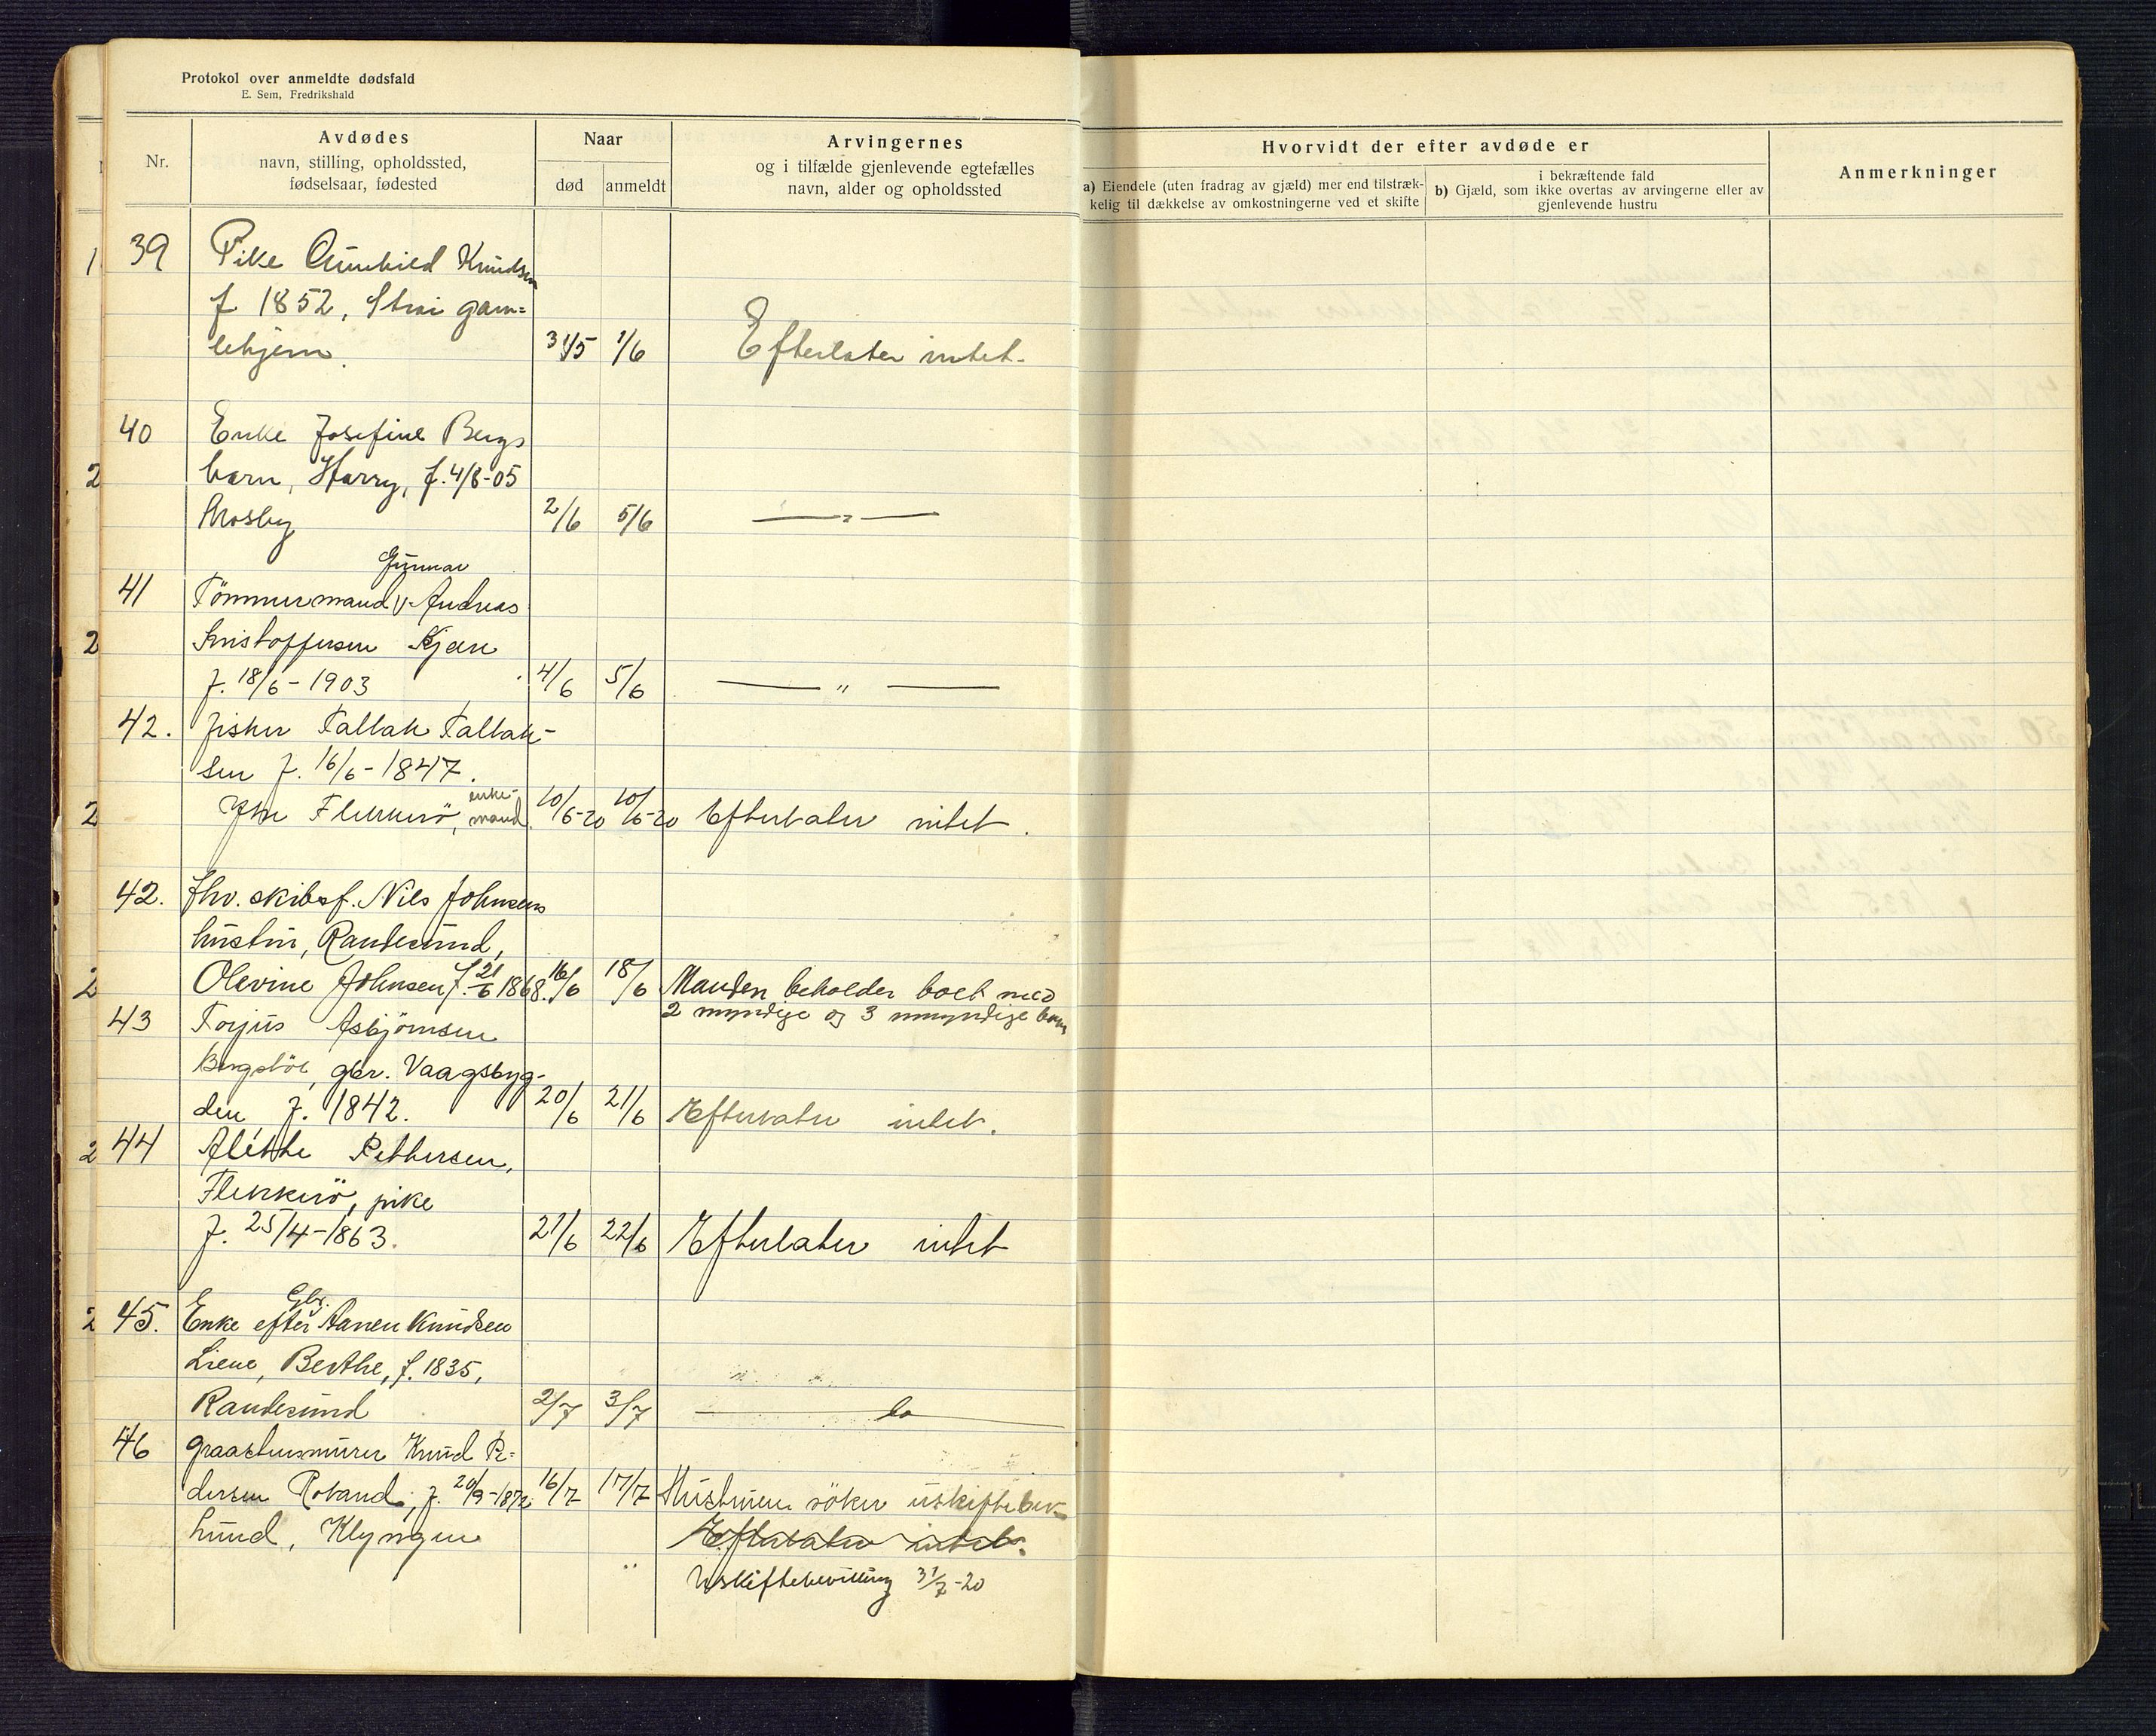 Protokol over anmeldte dødsfald
E. Sem, Fredrikshald
Nr.
Avdødes
navn, stilling, opholdssted,
fødselsaar, fødested
Naar
død
anmeldt
Arvingernes
og i tilfælde gjenlevende egtefælles
navn, alder og opholdssted
Hvorvidt der efter avdøde er
a) Eiendele (uten fradrag av gjæld) mer end tilstræk-
kelig til dækkelse av omkostningerne ved et skifte
i bekræftende fald
b) Gjæld, som ikke overtas av arvingerne eller av
gjenlevende hustru
Anmerkninger
39 Pike Gunhild Knudsen
f 1852, Strai gam=
lehjem. 31/5 1/6 Efterlater intet.
40 Enke Josefine Bergs
barn, Harry, f. 4/8-05
Mosby 2/6 5/6 — " —
Gunnar
41 Tömmermand v Andreas
Kristoffersen Kjær
f. 18/6 - 1903 4/6 5/6 — " —
42. fisker Tallak Tallak-
sen f. 16/6 - 1847.
enke-
Flekkerö, mand. 10/6-20 10/6-20 Efterlater intet.
42. fhv. skibsf. Nils Johnsens
hustru, Randesund,
Olevine Johnsen f. 21/6 1868. 16/6 18/6 Manden beholder boet med
2 myndige og 3 umyndige barn
43 Torjus Asbjörnsen
Bergstöl, gbr. Vaagsbyg-
den f. 1842. 20/6 21/6 Efterlater intet.
44 Aléthe Pettersen,
Flekkerö, pike
f. 25/4 - 1863. 21/6 22/6 Efterlater intet
Gbr.
45. Enke efter Aanen Knudsen
Liene, Berthe, f. 1835,
Randesund 2/7 3/7 — do —
46 graastensmurer Knud Pe=
dersen Roland, f. 20/9-1872 16/7 17/7 Hustruen söker uskiftebev-
Lund, Klyngen Efterlater intet.
Uskiftebevilling 31/7-20